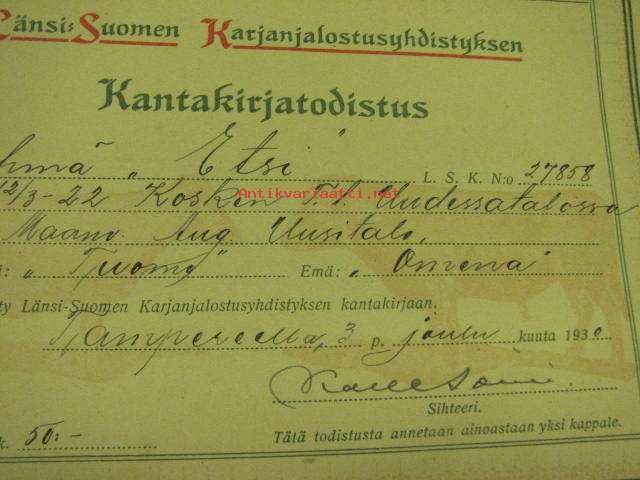 Länsi-Suomen Karjanjalostusyhdistyksen
Kantakirjatodistus
hmä „Etsi" L. S. K. N:o 27858
12/3-22 Kosken Tl. Uudessatalossa
Antikvariaatti.net
Maanv. Aug. Uusitalo,
: „Tuomo" Emä: „Omena"
ty Länsi-Suomen Karjanjalostusyhdistyksen kantakirjaan.
Tampereella, 3 p. joulu kuuta 1930
Sihteeri.
k. 50:-
Tätä todistusta annetaan ainoastaan yksi kappale.